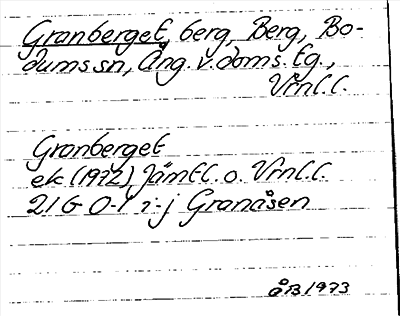 Granberget, berg, Berg, Bo-
dums sn, Ång. v. doms. tg.,
Vrnl. l.
Granberget
ek (1972) Jämtl. o. Vrnl. l.
21G 0-1 i-j Granåsen
ÅB 1973